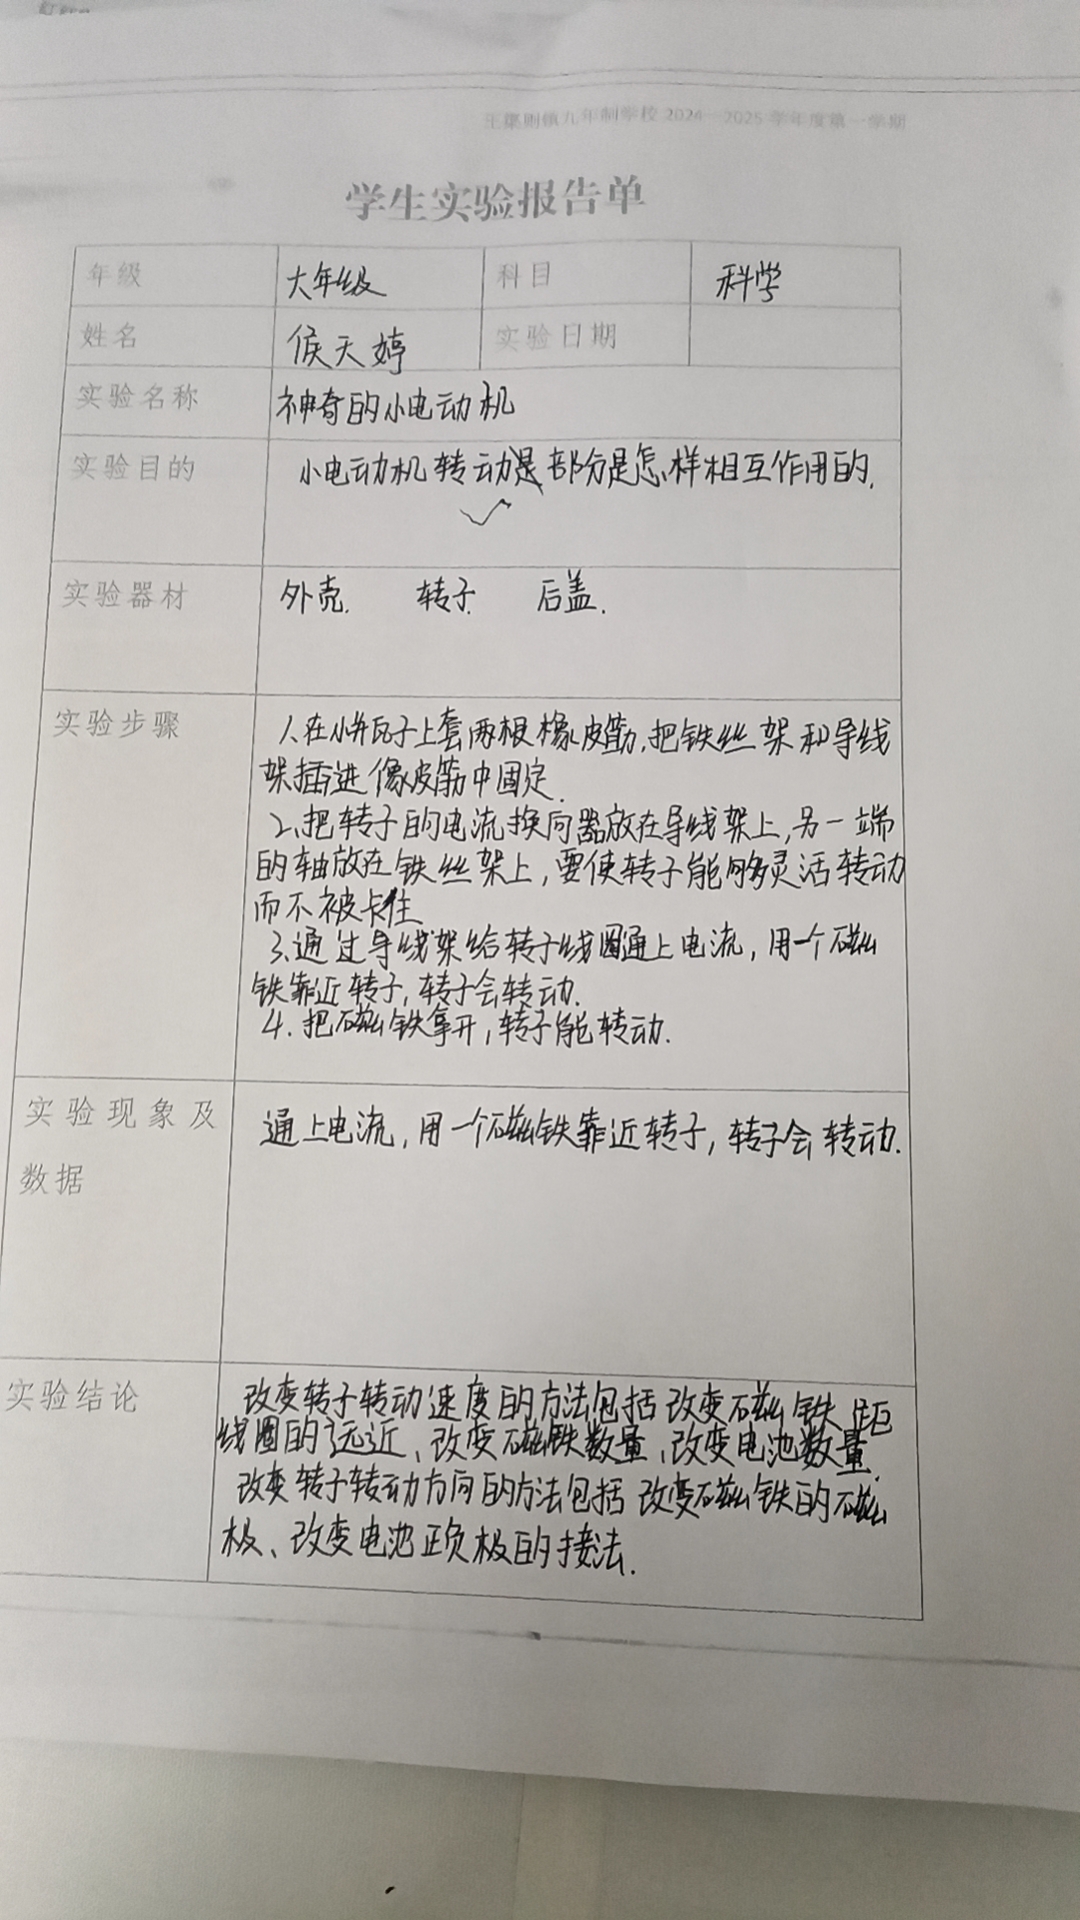 王集则镇九年制学校 2024—2025 学年度第一学期
学生实验报告单
年级 六年级 科目 科学
姓名 侯天婷 实验日期
实验名称 神奇的小电动机
实验目的 小电动机转动是部分是怎样相互作用的.
实验器材 外壳. 转子. 后盖.
实验步骤 1.在小饼瓦子上套两根橡皮筋,把铁丝架和导线
架插进像皮筋中固定.
2.把转子的电流换向器放在导线架上,另一端
的轴放在铁丝架上,要使转子能够灵活转动
而不被卡住
3.通过导线架给转子线圈通上电流,用一个磁
铁靠近转子,转子会转动.
4.把磁铁拿开,转子能转动.
实验现象及 通上电流,用一个磁铁靠近转子,转子会转动.
数据
实验结论 改变转子转动速度的方法包括改变磁铁距
线圈的远近、改变磁铁数量、改变电池数量.
改变转子转动方向的方法包括改变磁铁的磁
极、改变电池正负极的接法.